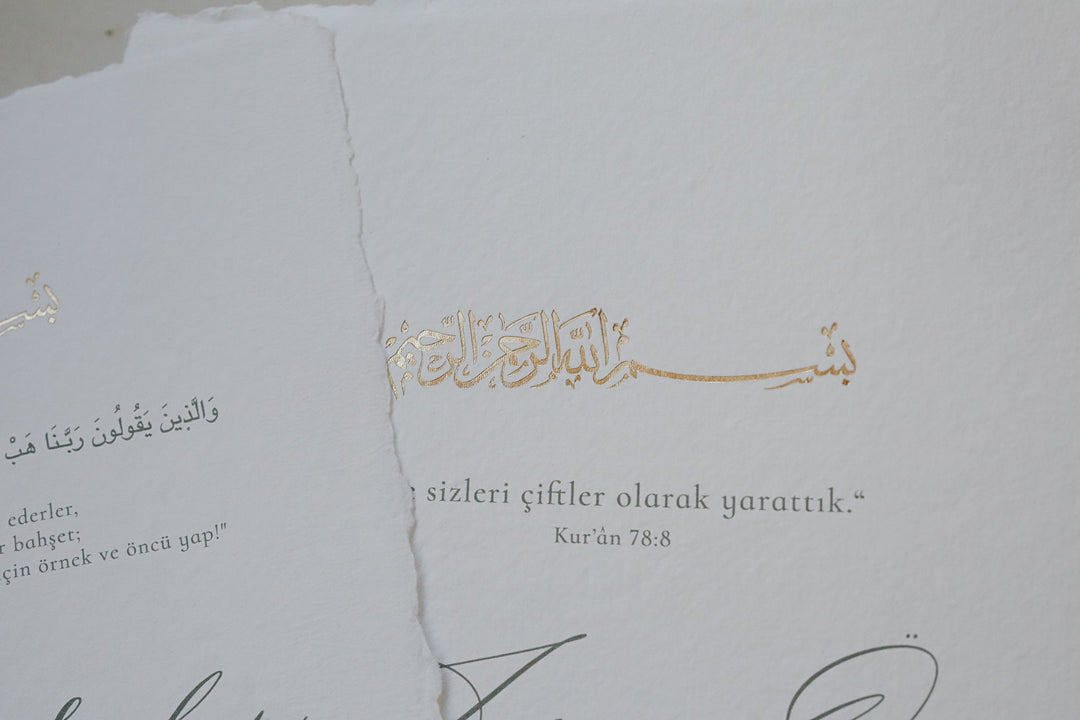 بسـ
وَالَّذِينَ يَقُولُونَ رَبَّنَا هَبْ
ederler,
bahşet;
için örnek ve öncü yap!"
بسم الله الرحمن الرحيم
sizleri çiftler olarak yarattık.“
Kur’ân 78:8